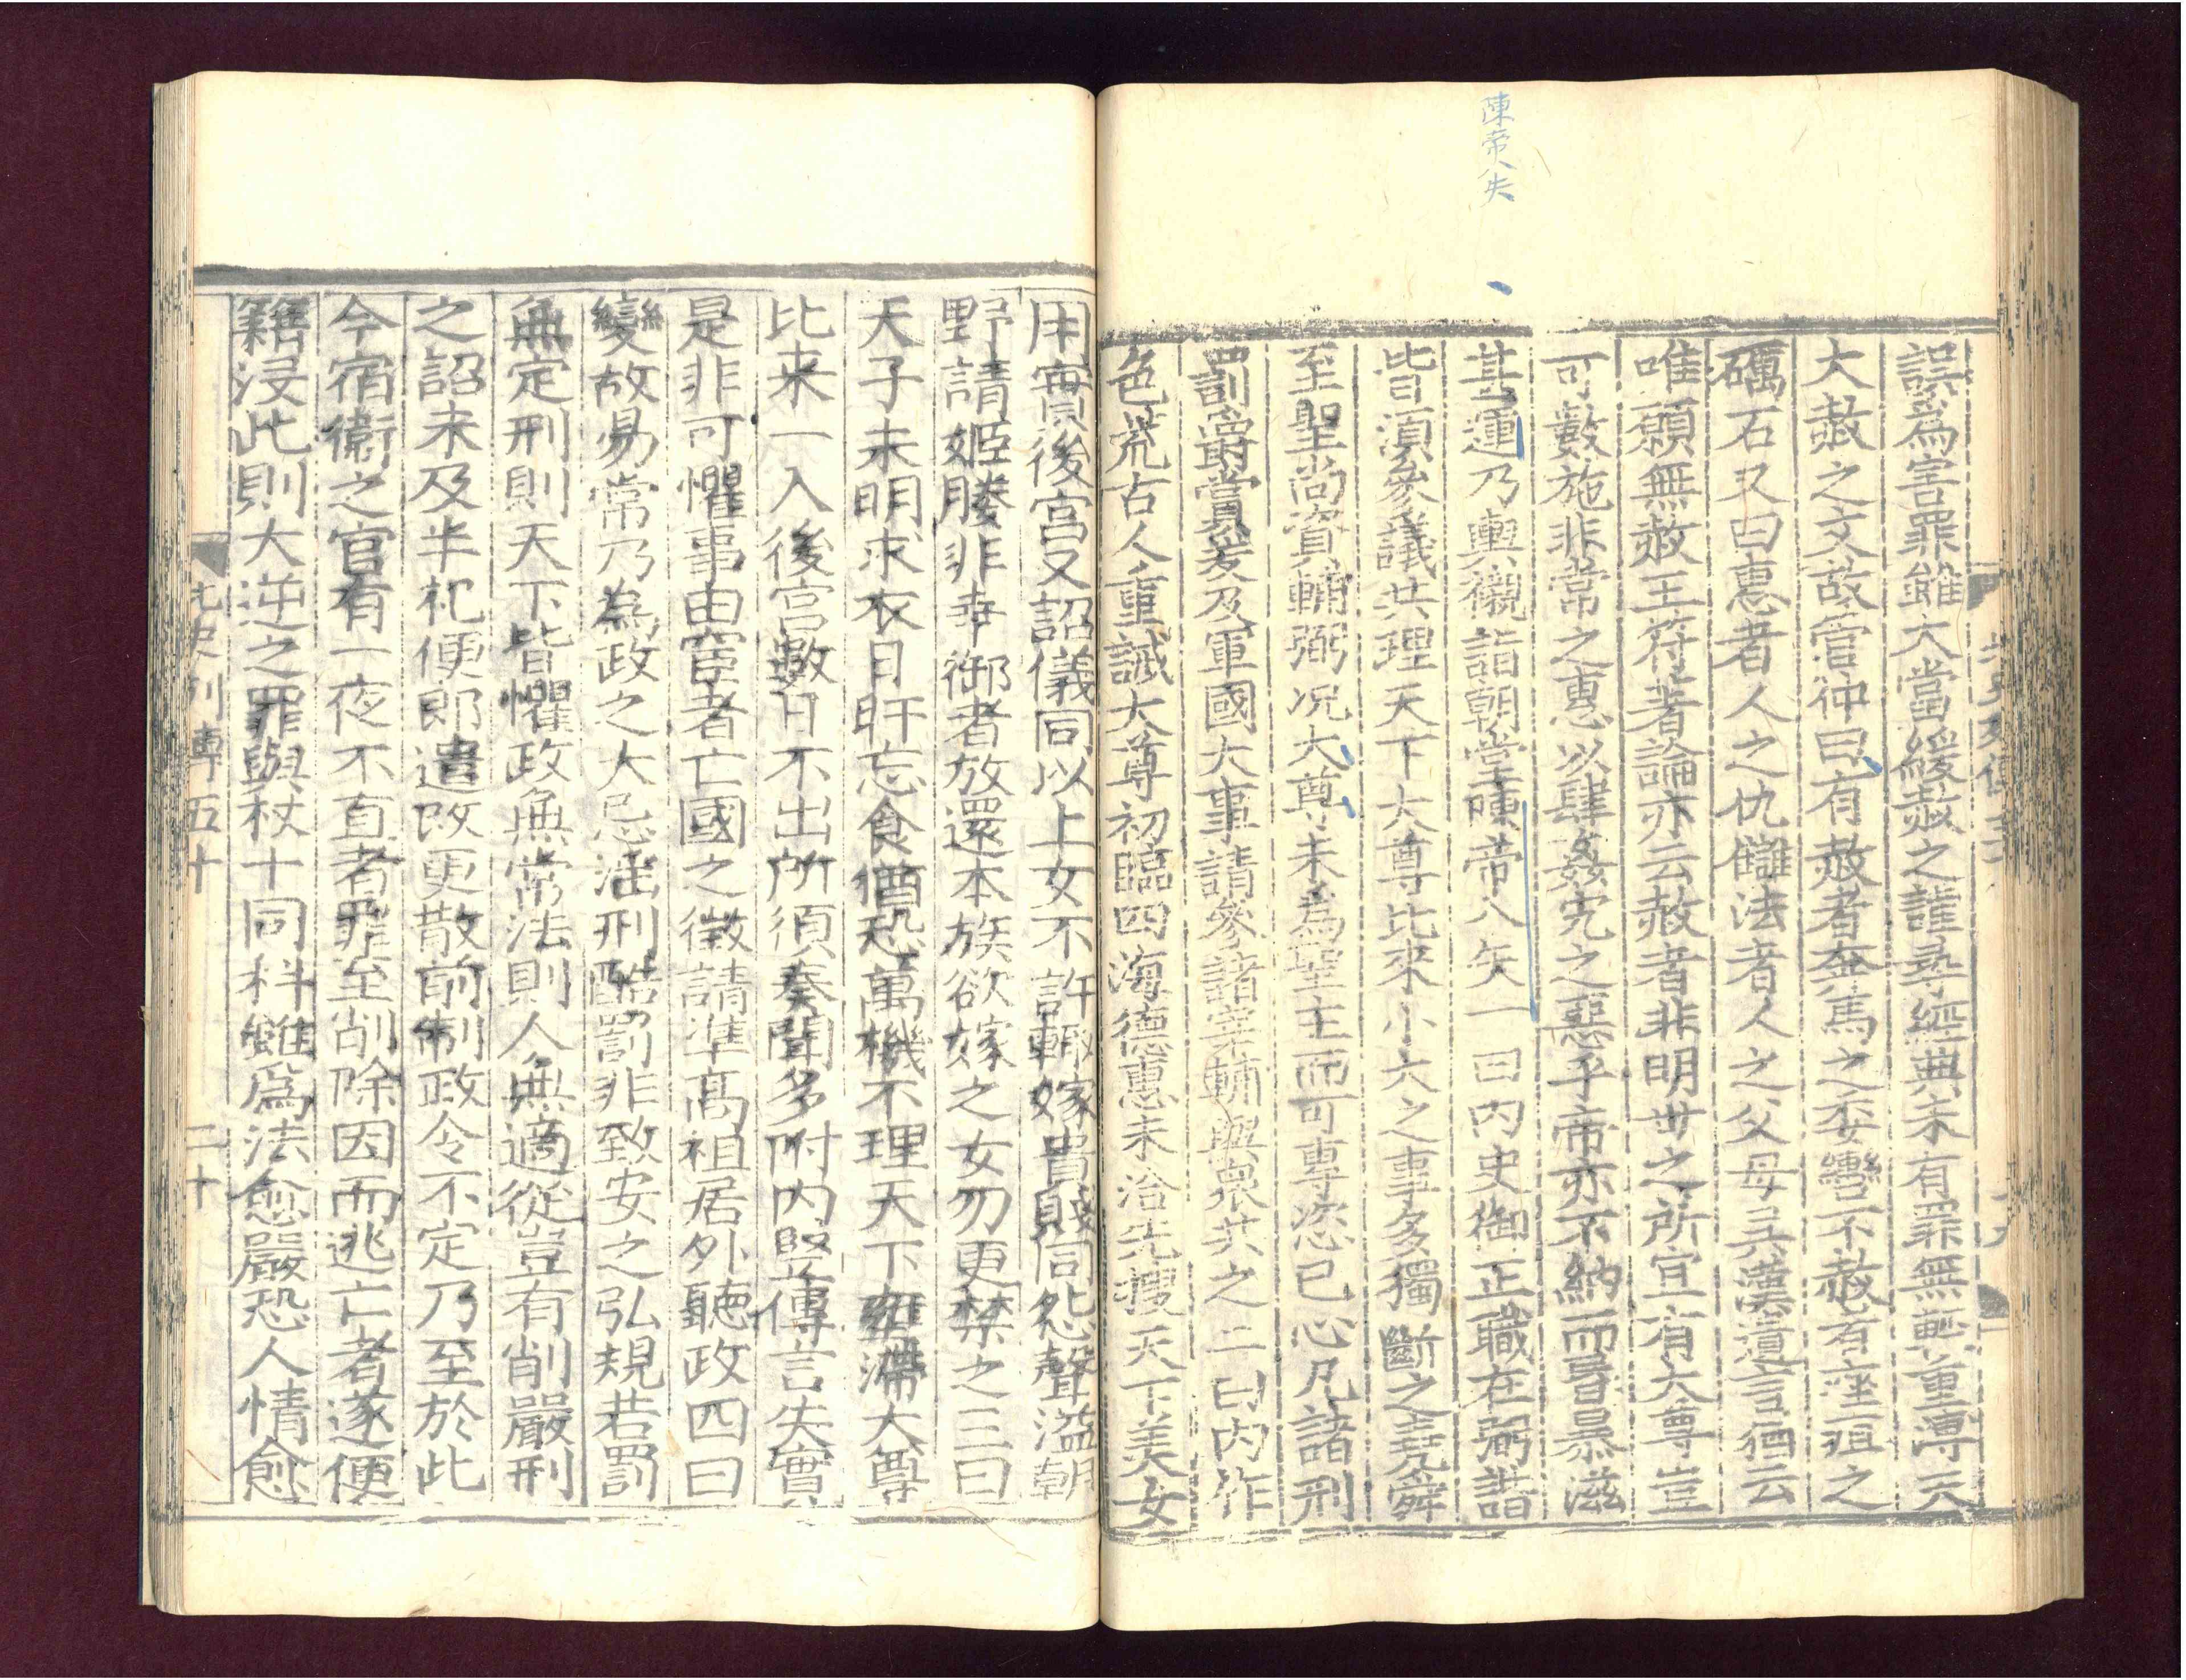 陳帝八失
誤爲害罪雖大當緩赦之謹尋經典未有罪無輕重溥天
大赦之文故管仲曰有赦者奔馬之委轡不赦者痤疽之
礪石又曰惠者人之仇讎法者人之父母吳漢遺言猶云
唯願無赦王符著論亦云赦者非明世之所宜有大尊豈
可數施非常之惠以肆姦宄之惡乎帝亦不納而昏暴滋
甚運乃輿櫬詣朝堂陳帝八失一曰內史御正職在弼諧
皆須參議共理天下大尊比來小大之事多獨斷之堯舜
至聖尚資輔弼况大尊未爲聖主而可專恣己心凡諸刑
罰爵賞爰及軍國大事請參諸宰輔與衆共之二曰內作
色荒古人重誡大尊初臨四海德惠未洽先搜天下美女
用實後宮又詔儀同以上女不許輒嫁貴賤同怨聲溢朝
野請姬媵非幸御者放還本族欲嫁之女勿更禁之三曰
天子未明求衣日旰忘食猶恐萬機不理天下壅滯大尊
比來一入後宮數日不出所須奏聞多附內竪傳言失實
是非可懼事由宦者亡國之徵請準髙祖居外聽政四曰
變故易常乃為政之大忌淫刑酷罰非致安之弘規若罰
無定刑則天下皆懼政無常法則人無適從豈有削嚴刑
之詔未及半祀便即遣改更散前制政令不定乃至於此
今宿衛之官有一夜不直者罪至削除因而逃亡者遂便
籍沒此則大逆之罪與杖十同科雖爲法愈嚴恐人情愈
北史列傳五十
二十